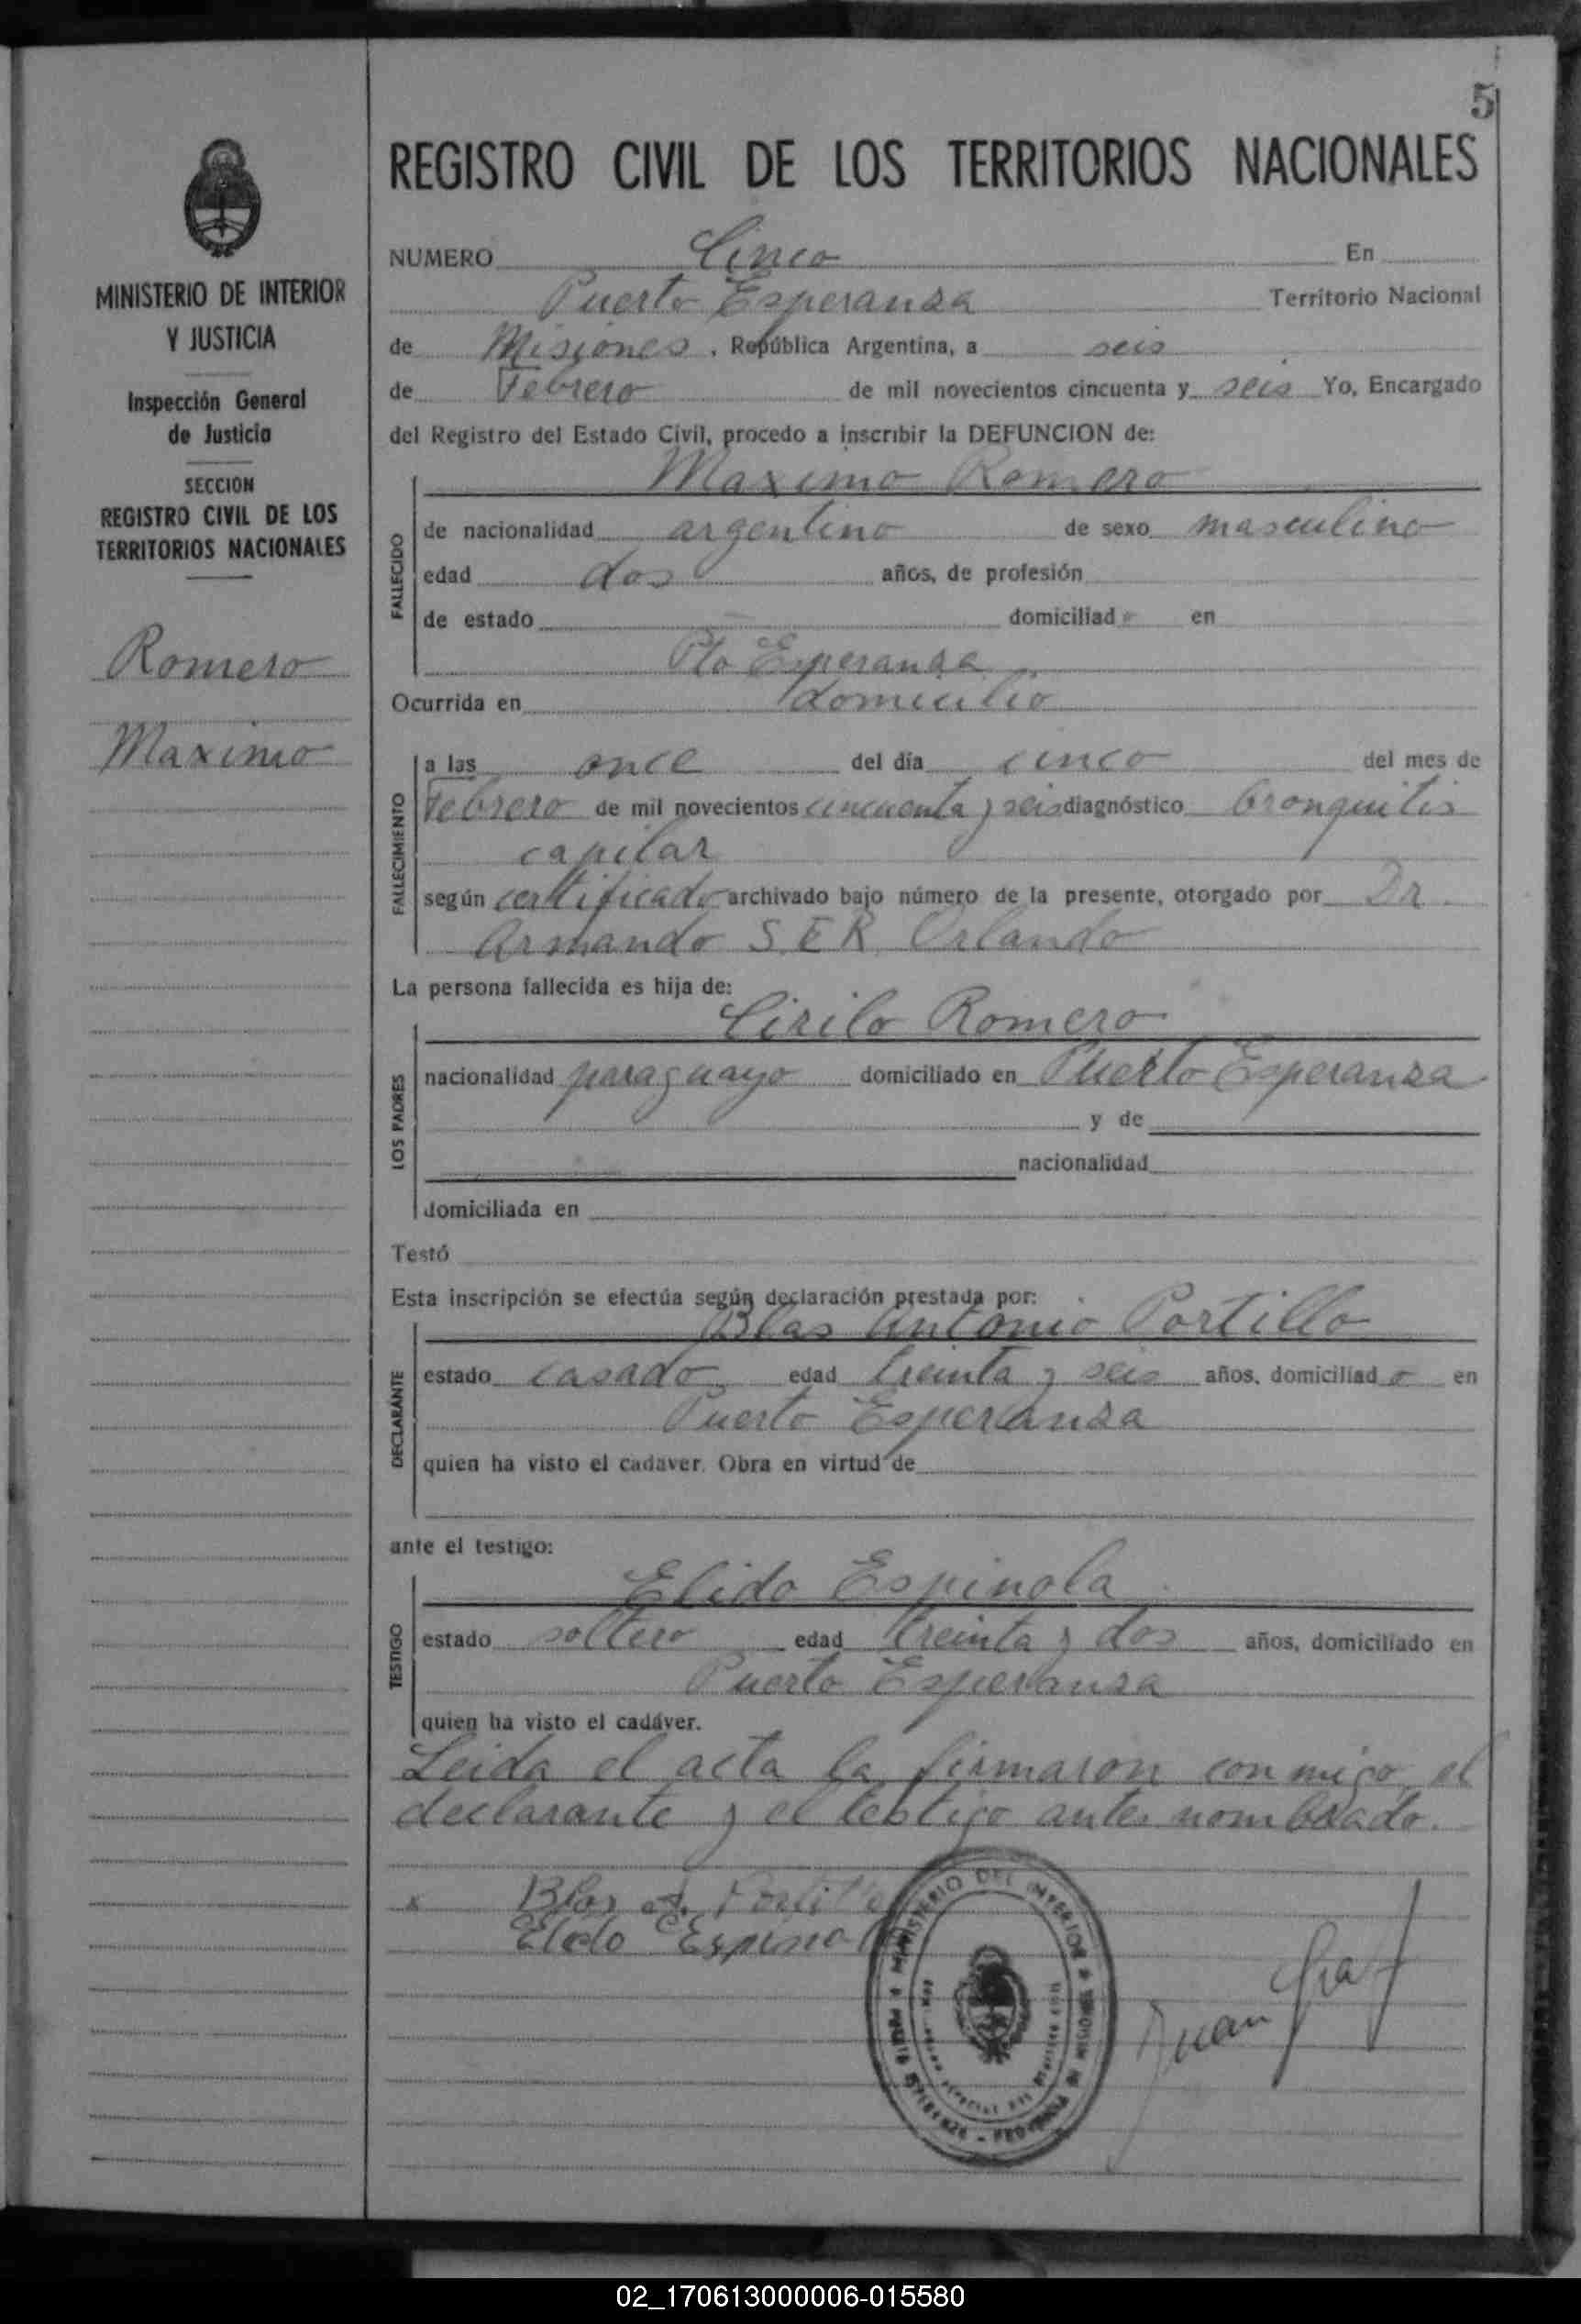 5
REGISTRO CIVIL DE LOS TERRITORIOS NACIONALES
MINISTERIO DE INTERIOR
Y JUSTICIA
Inspección General
de Justicia
SECCION
REGISTRO CIVIL DE LOS
TERRITORIOS NACIONALES
Romero
Maximo
NUMERO Cinco En
Puerto Esperanza Territorio Nacional
de Misiones, República Argentina, a seis
de Febrero de mil novecientos cincuenta y seis Yo, Encargado
del Registro del Estado Civil, procedo a inscribir la DEFUNCION de:
Maximo Romero
FALLECIDO
de nacionalidad argentino de sexo masculino
edad dos años, de profesión
de estado domiciliado en
Pto Esperanza
Ocurrida en domicilio
FALLECIMIENTO
a las once del día cinco del mes de
Febrero de mil novecientos cincuenta y seis diagnóstico bronquitis
capilar
según certificado archivado bajo número de la presente, otorgado por Dr.
Armando S.E.R. Orlando
La persona fallecida es hija de:
Cirilo Romero
LOS PADRES
nacionalidad paraguayo domiciliado en Puerto Esperanza
y de
nacionalidad
domiciliada en
Testó
Esta inscripción se efectúa según declaración prestada por:
Blas Antonio Portillo
DECLARANTE
estado casado edad treinta y seis años, domiciliado en
Puerto Esperanza
quien ha visto el cadáver. Obra en virtud de
ante el testigo:
Elido Espinola
TESTIGO
estado soltero edad treinta y dos años, domiciliado en
Puerto Esperanza
quien ha visto el cadáver.
Leida el acta la firmaron conmigo, el
declarante y el testigo antes nombrado.
x Blas A. Portillo
Elido Espinola
MINISTERIO DEL INTERIOR
Juan
02_170613000006-015580